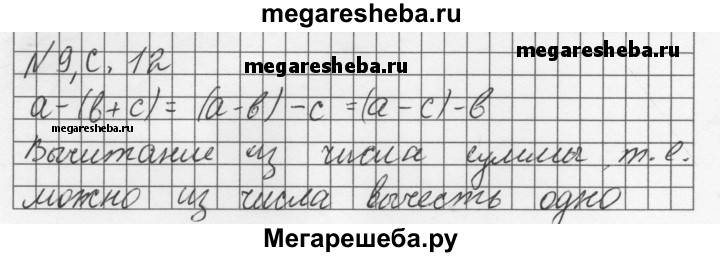 megaresheba.ru
megaresheba.ru
N 9, с. 12
megaresheba.ru
a-(в+c)= (a-в)-c =(a-c)-в
megaresheba.ru
Вычитание из числа суммы, т.е.
можно из числа вычесть одно
Мегарешеба.ру